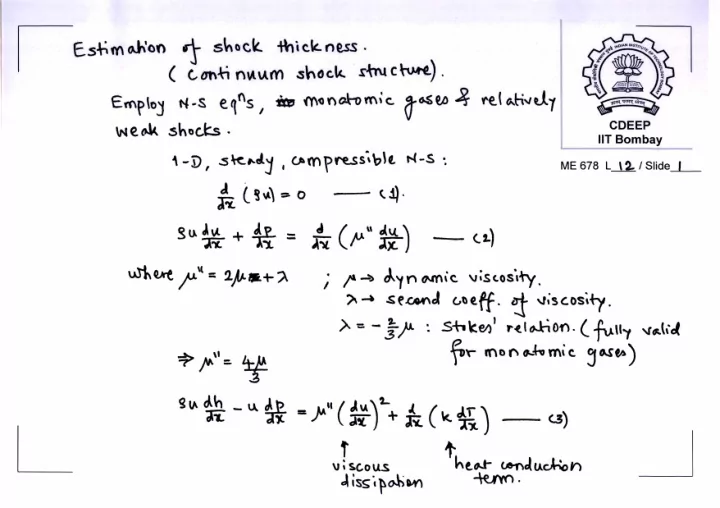 Estimation of shock thickness.
( Continuum shock structure).
Employ N-S eqⁿs, monatomic gases & relatively
weak shocks.
CDEEP
IIT Bombay
ME 678 L 12 / Slide 1
1-D, steady, compressible N-S :
d/dx (ρu) = 0 —— (1).
ρu du/dx + dp/dx = d/dx (μ" du/dx) —— (2)
where μ" = 2μ + λ ; μ → dynamic viscosity.
λ → second coeff. of viscosity.
λ = - 2/3 μ : Stokes' relation. ( fully valid
for monatomic gases)
⇒ μ" = 4μ/3
ρu dh/dx - u dp/dx = μ" (du/dx)² + d/dx (k dT/dx) —— (3)
↑ ↑
viscous heat conduction
dissipation term.